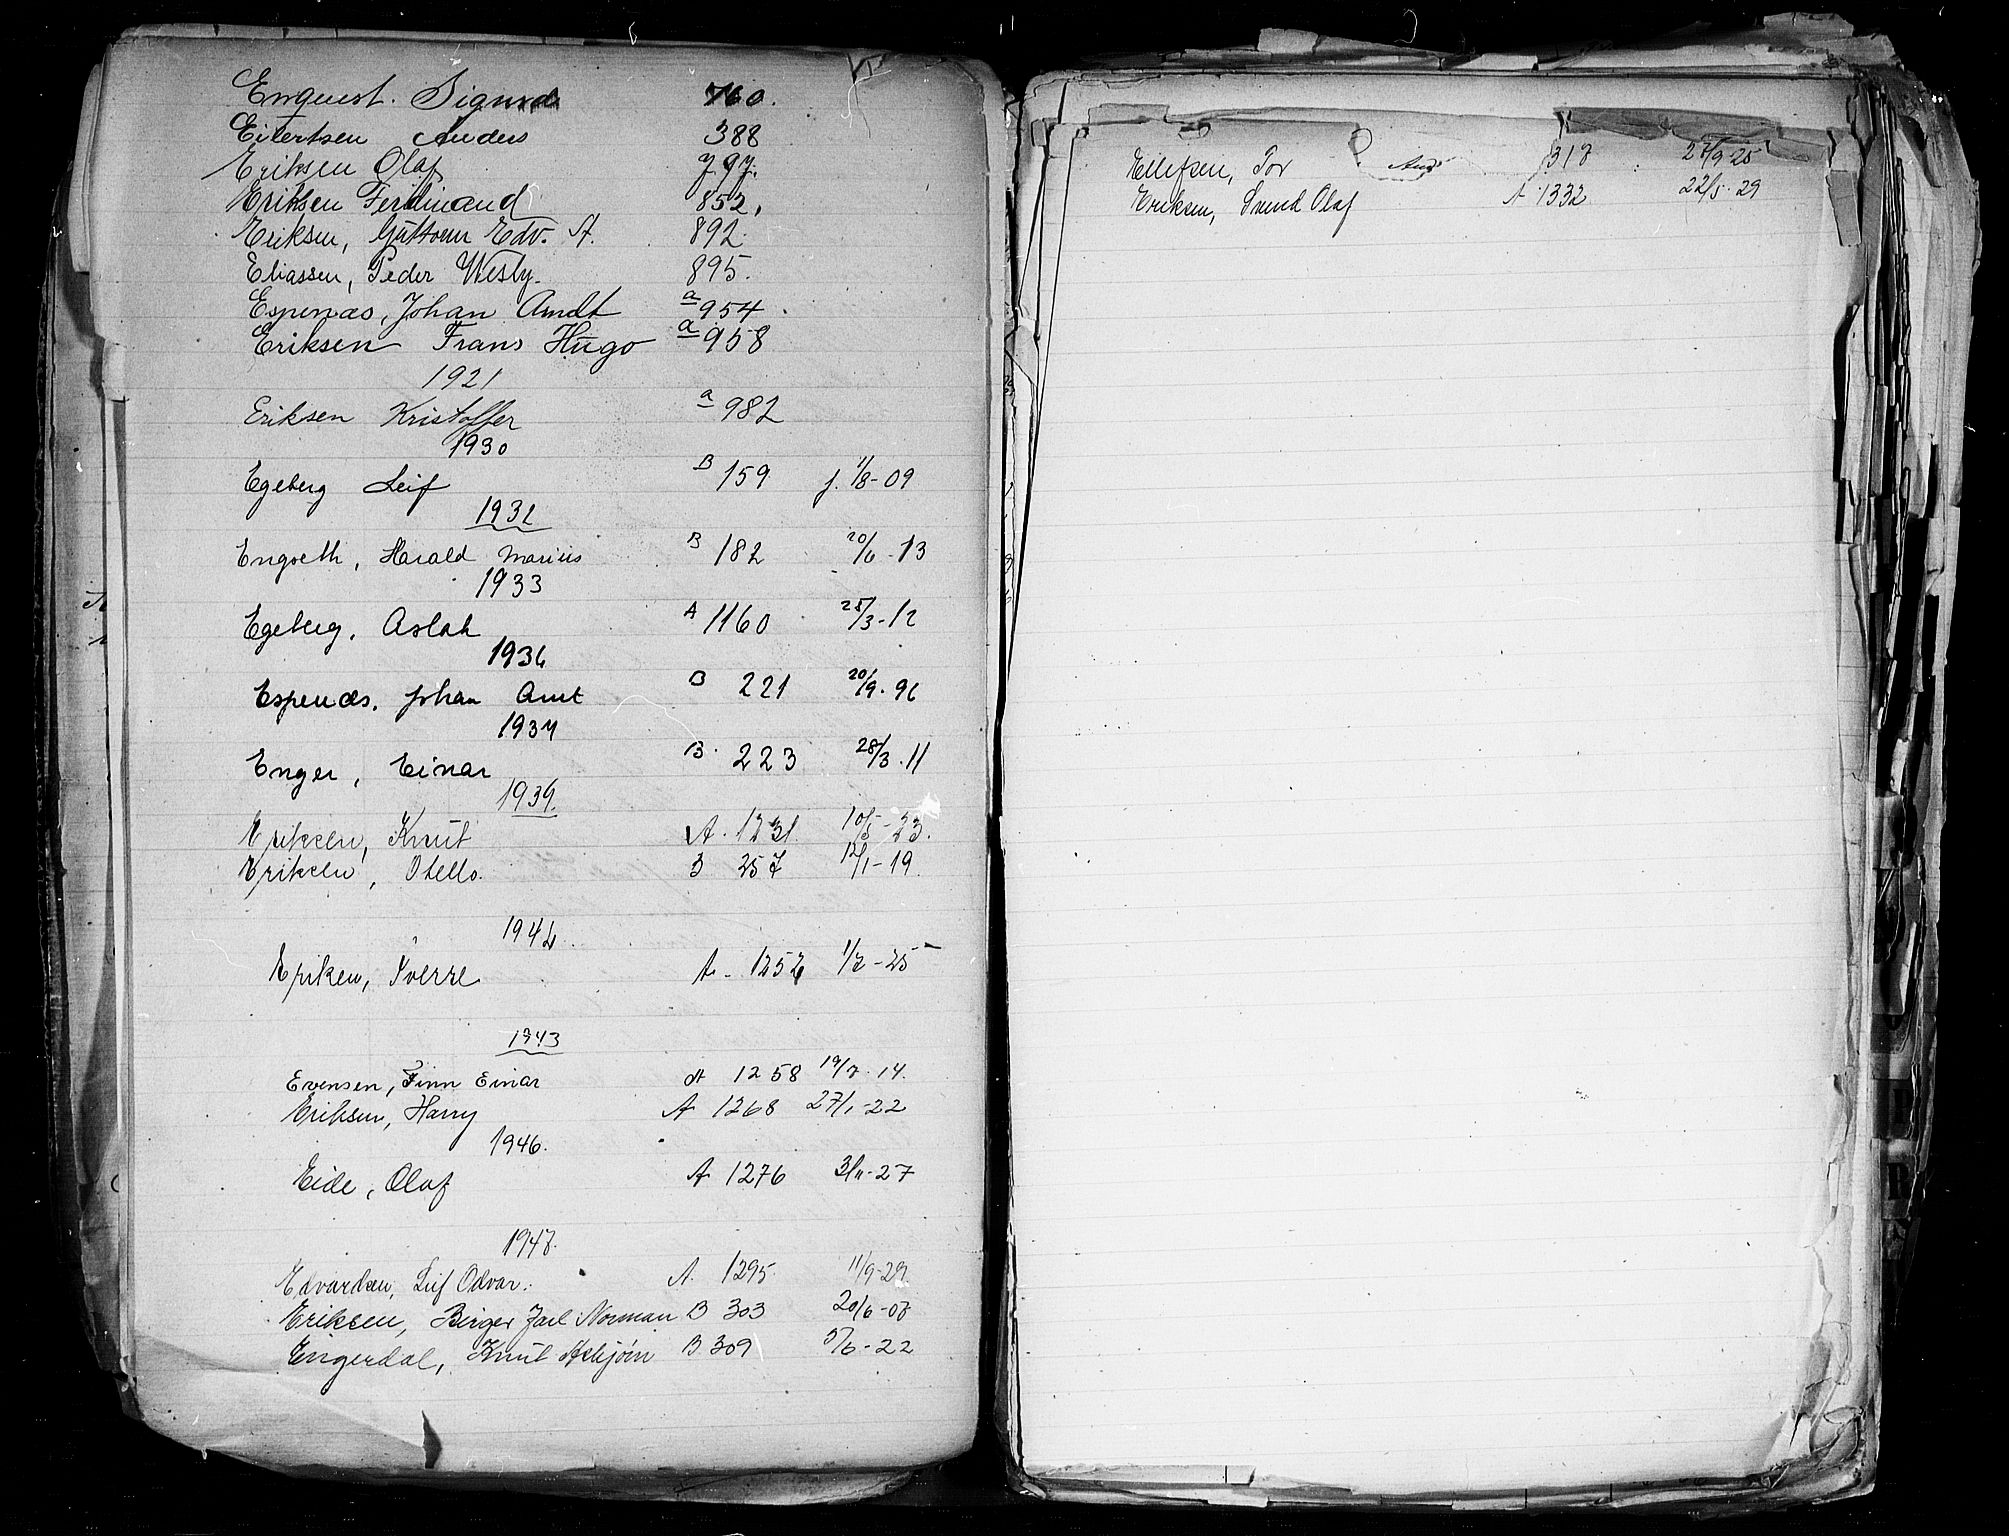 Enquest. Sigurd 760.
Eilertsen Anders 388
Eriksen Olaf 797.
Eriksen Ferdinand 852.
Eriksen, Guttorm Edv. A. 892.
Eliassen, Peder Wesly. 895.
Espenæs, Johan Arndt a 954
Eriksen Frans Hugo a 958
1921
Eriksen Kristoffer a 982
1930
Egeberg Leif B 159 f. 1/8-09
1932
Engseth, Harald Marius B 182 20/6-13
1933
Egeberg, Aslak A 1160 25/3-12
1936
Espenæs, Johan Arnt B 221 20/9.96
1937
Enger, Einar B. 223 28/3.11
1939.
Eriksen, Knut A. 1231 10/5-23.
Eriksen, Otello. B 257 12/1-19.
1942.
Eriksen, Sverre A- 1252 1/2-25
1943
Evensen, Finn Einar A 1258 19/7.14.
Eriksen, Harry A 1268 27/1-22
1946.
Eide, Olaf A 1276 3/11-27
1947.
Edvardsen, Leif Odvar. A. 1295. 11/9-29.
Eriksen, Birger Jarl Norman B 303 20/6-07
Engerdal, Knut Asbjørn B 309 5/6-22
Ellefsen, Tor 1317 27/9-25
Eriksen, Svend Olaf A 1332 22/5-29